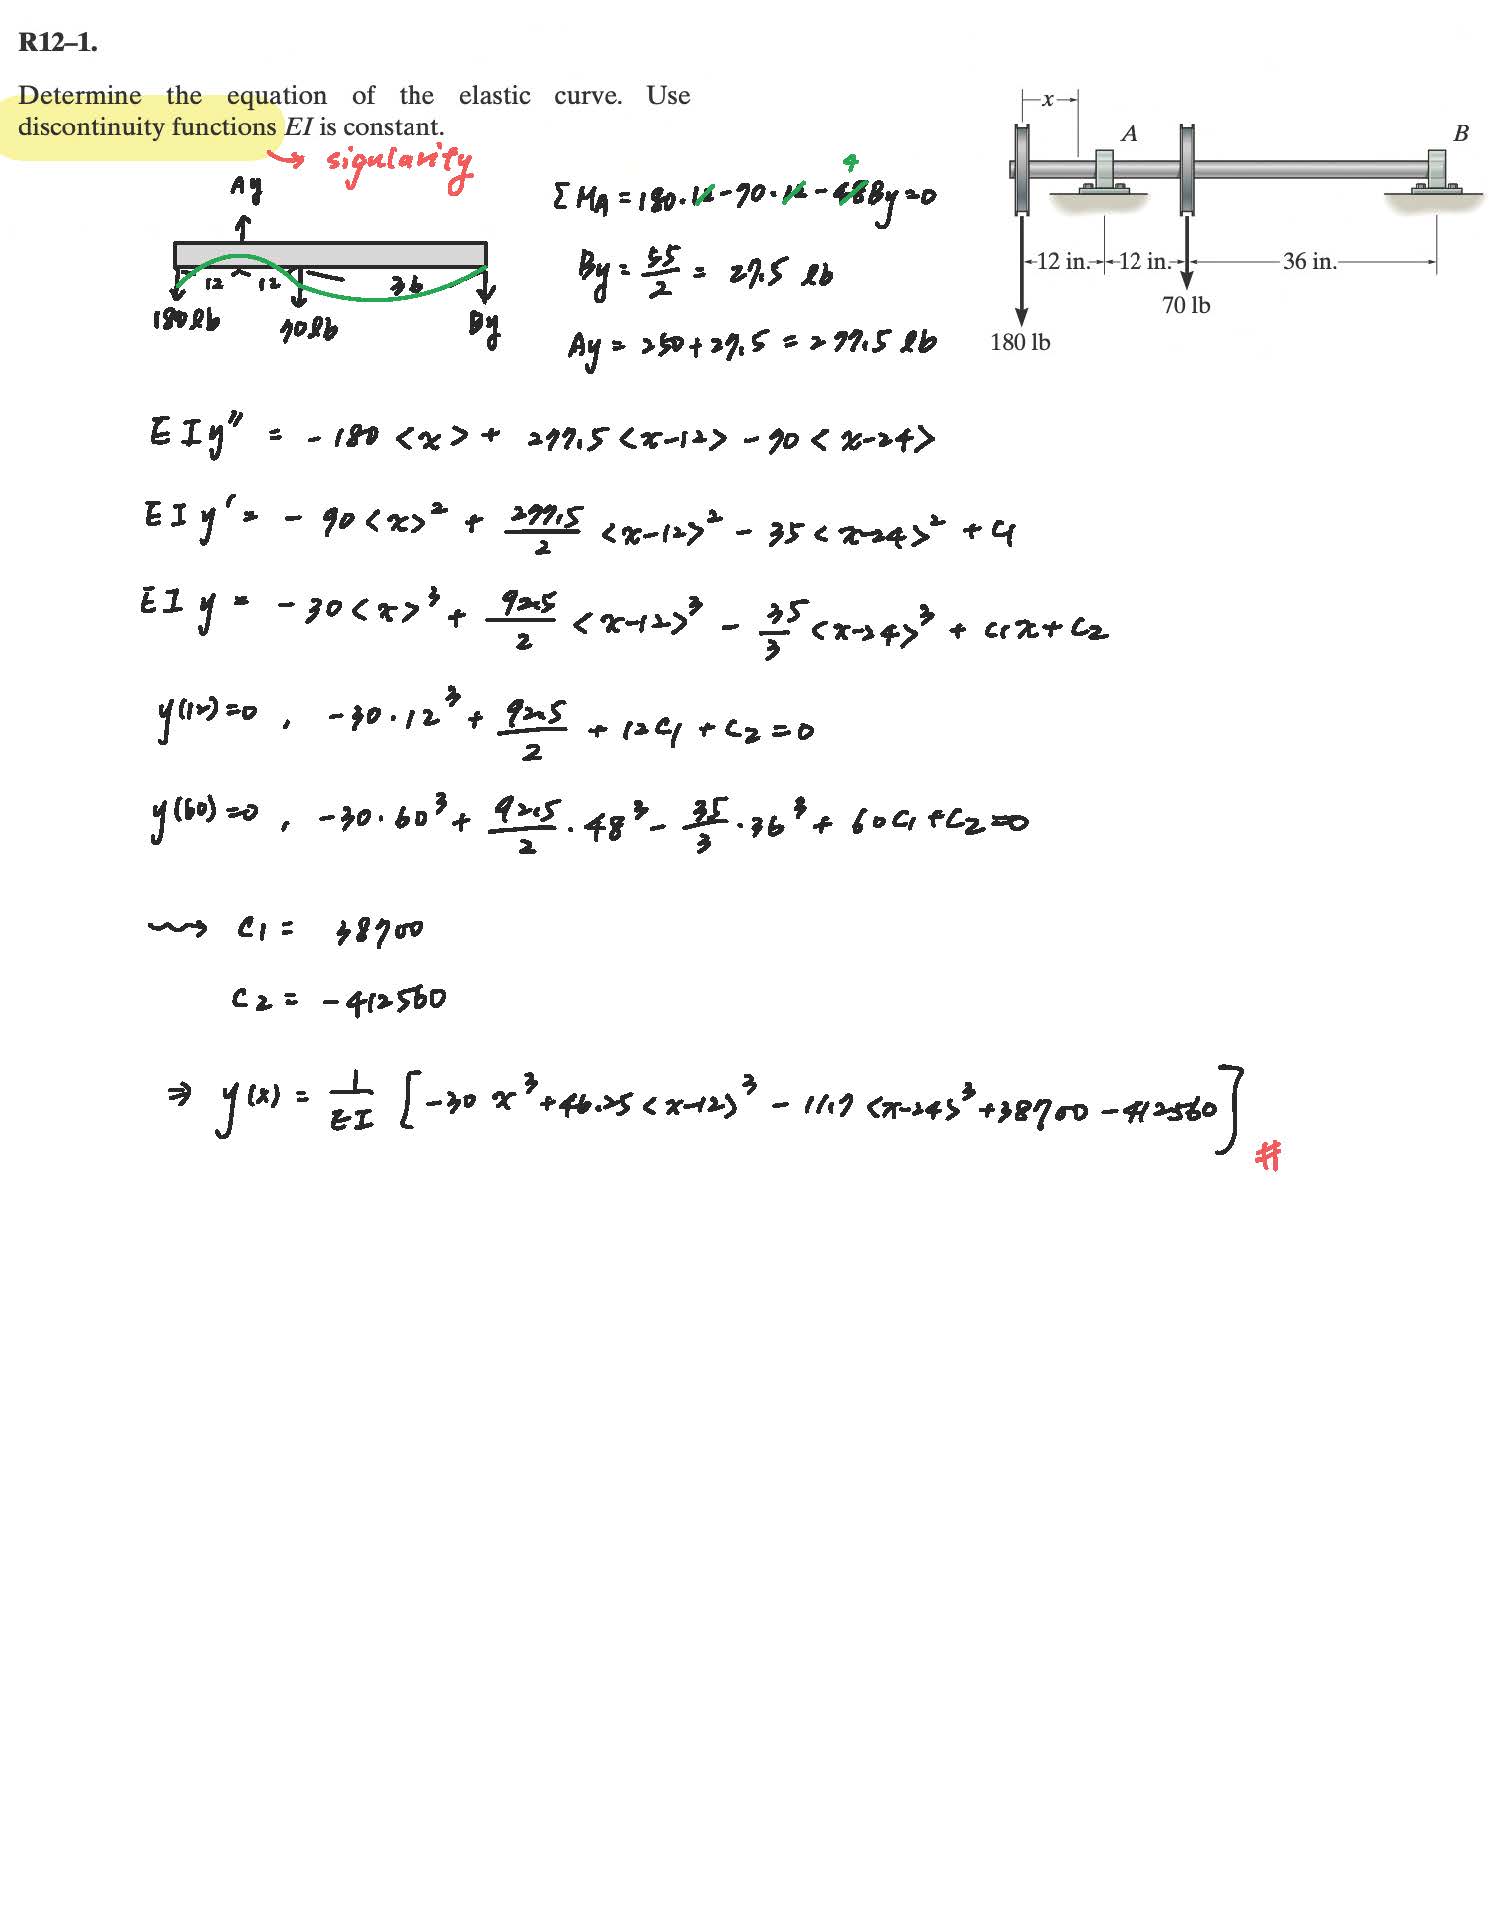 R12–1.
Determine the equation of the elastic curve. Use
discontinuity functions EI is constant.
→ sigularity
x
A
B
12 in.
12 in.
36 in.
70 lb
180 lb
Ay
12
12
36
180lb
70lb
By
4
ΣMA = 180·12 - 70·12 - 48By = 0
By = 55/2 = 27.5 lb
Ay = 250 + 27.5 = 277.5 lb
EIy'' = - 180 <x> + 277.5 <x-12> - 70 <x-24>
EIy' = - 90<x>² + 277.5/2 <x-12>² - 35 <x-24>² + C1
EIy = - 30<x>³ + 92.5/2 <x-12>³ - 35/3 <x-24>³ + C1x + C2
y(12)=0 , -30·12³ + 92.5/2 + 12C1 + C2 = 0
y(60)=0 , -30·60³ + 92.5/2 · 48³ - 35/3 · 36³ + 60C1 + C2 = 0
⇝ C1 = 38700
C2 = -412560
⇒ y(x) = 1/EI [-30x³ + 46.25<x-12>³ - 11.7<x-24>³ + 38700 - 412560]
#